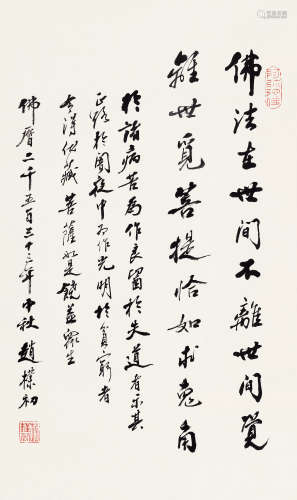 佛法在世間不離世間覺
離世覓菩提恰如求兔角
於諸病苦為作良醫於失道者示其
正路於闇夜中為作光明於貧窮者
令得伏藏菩薩如是饒益眾生
佛曆二千五百三十三年中秋 趙樸初